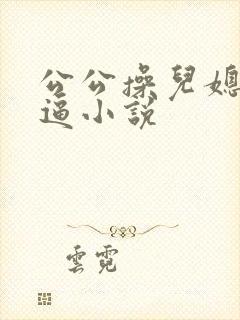 公公操兒媳
逼小說
雲霓